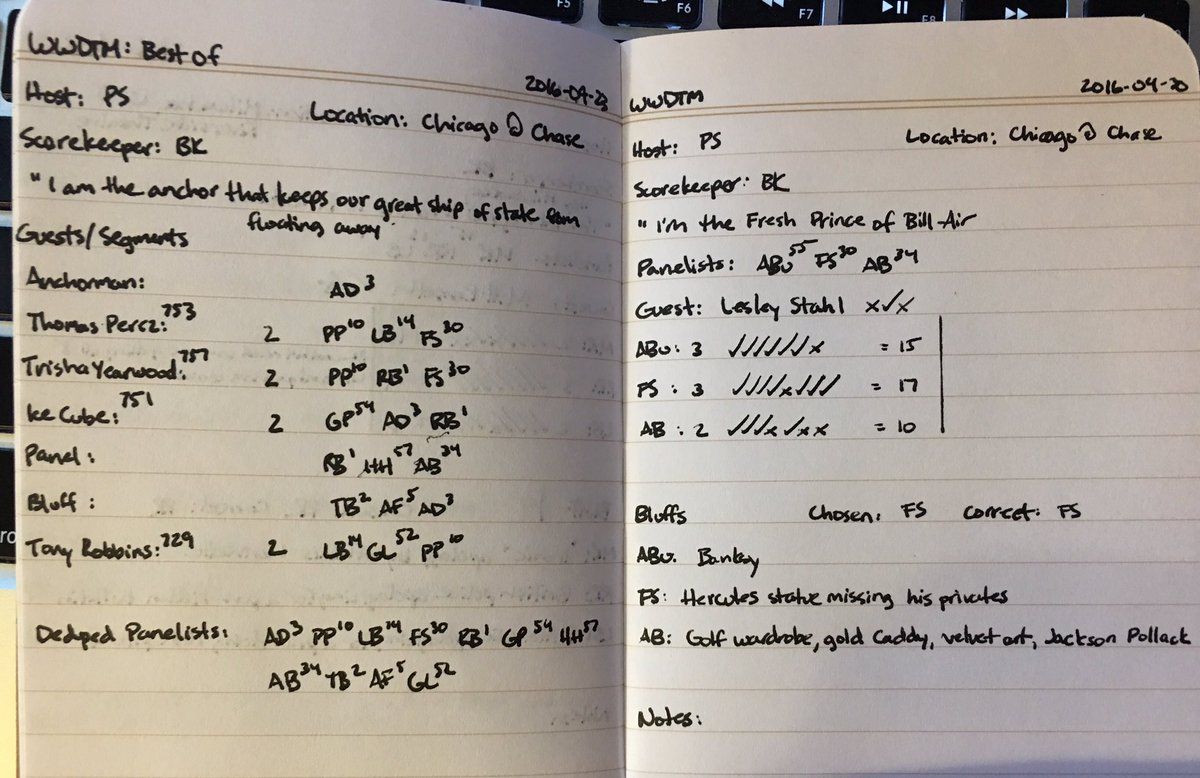 F5
F6
F7
F8
WWDTM: Best of
2016-04-23
Host: PS
Location: Chicago @ Chase
Scorekeeper: BK
"I am the anchor that keeps our great ship of state from
floating away"
Guests/Segments
Anchorman: AD3
Thomas Perez: 753 2 PP10 LB14 FS30
Trisha Yearwood: 757 2 PP10 RB1 FS30
Ice Cube: 751 2 GP54 AD3 RB1
Panel: RB1 HH57 AB34
Bluff: TB2 AF5 AD3
Tony Robbins: 729 2 LB14 GL52 PP10
Deduped Panelists: AD3 PP10 LB14 FS30 RB1 GP54 HH57
AB34 TB2 AF5 GL52
WWDTM 2016-04-30
Host: PS Location: Chicago @ Chase
Scorekeeper: BK
"I'm the Fresh Prince of Bill-Air
Panelists: ABu55 FS30 AB34
Guest: Lesley Stahl x✓x
ABu: 3 ✓✓✓✓✓✓x = 15
FS: 3 ✓✓✓✓x✓✓✓ = 17
AB: 2 ✓✓✓x✓xx = 10
Bluffs Chosen: FS Correct: FS
ABu: Banksy
FS: Hercules statue missing his privates
AB: Golf wardrobe, gold Caddy, velvet art, Jackson Pollack
Notes: